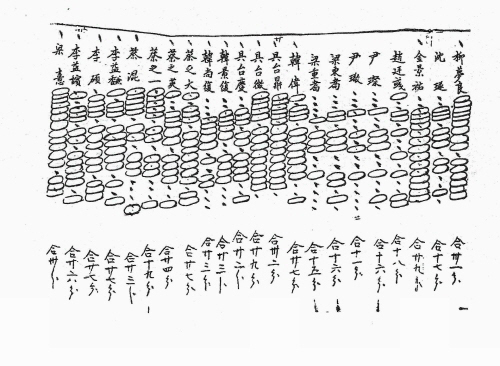 柳夢良 合卅一分
沈 合十七分
金景祐 合廿九分
趙廷 合十八分
尹璨 合十六分
尹 合十一分
梁東喬 合十六分
梁重喬 合十五分
韓偉 合廿七分
具台鼎 合卅二分
具台徵 合廿九分
具台慶 合廿二分
韓景復 合廿三分
韓尚復 合廿三分
蔡之大 合廿七分
蔡之英 合廿四分
蔡之一 合十九分
蔡混 合廿三分
李益 合廿七分
李碩 合廿七分
李益馪 合廿六分
梁憲 合卅分